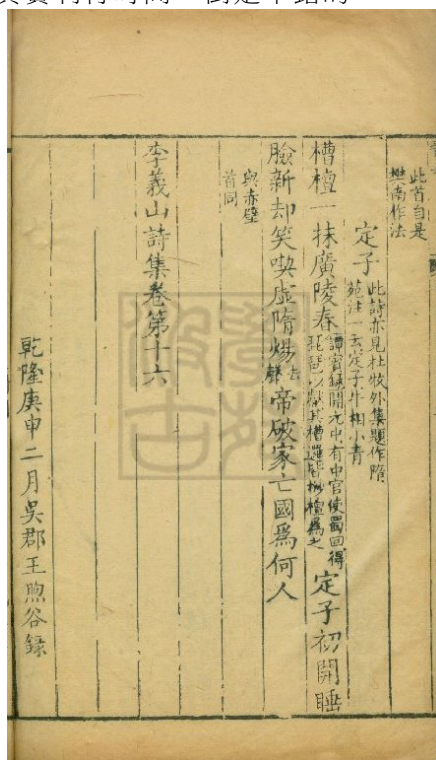 此首自是
樊南作法
定子
此詩亦見杜牧外集題作隋
苑注一云定子牛相小青
槽檀一抹廣陵春
譚賓錄開元中有中官使蜀回得
琵琶以獻其槽邏皆桫檀爲之
定子初開睡
臉新却笑喫虛隋煬
去
聲
帝破家亡國爲何人
與赤壁
首同
李義山詩集卷第十六
乾隆庚申二月吳郡王煦谷錄
學苑
汲古